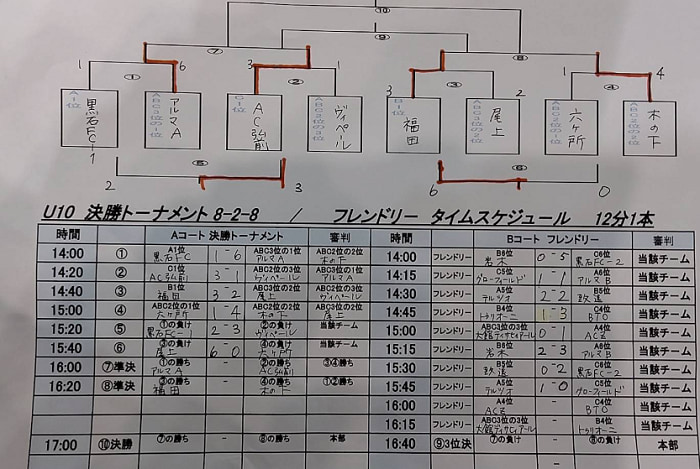 ⑩
⑨
⑦
⑧
1 ① 6
3 ② 1
3 ③ 2
1 ④ 4
A1位 黒石FC 1
ABC3位の1位 アルマA
C1位 AC弘前
ABC2位の3位 ヴィペール
B1位 福田
尾上
ABC2位の1位 六ヶ所
ABC2位の2位 木の下
2 ⑤ 3
6 ⑥ 0
U10 決勝トーナメント 8-2-8 / フレンドリー タイムスケジュール 12分1本
時間 Aコート 決勝トーナメント 審判 時間 Bコート フレンドリー 審判
14:00 ① A1位 黒石FC 1-6 ABC3位の1位 アルマA ABC2位の2位 木の下 14:00 フレンドリー B6位 岩木 0-5 C6位 黒石FC-2 当該チーム
14:20 ② C1位 AC弘前 3-1 ABC2位の3位 ヴィペール ABC3位の1位 アルマA 14:15 フレンドリー C5位 グローフィールド 1-1 A6位 アルマB 当該チーム
14:40 ③ B1位 福田 3-2 ABC3位の2位 尾上 ABC2位の3位 ヴィペール 14:30 フレンドリー A5位 テルツォ 2-2 B5位 鉄道 当該チーム
15:00 ④ ABC2位の1位 六ヶ所 1-4 ABC2位の2位 木の下 ABC3位の2位 尾上 14:45 フレンドリー B4位 トゥリオーニ 1-3 C4位 BTO 当該チーム
15:20 ⑤ ①の負け 黒石FC-1 2-3 ②の負け ヴィペール 当該チーム 15:00 フレンドリー ABC3位の3位 0-1 A4位 ACZ 当該チーム
15:40 ⑥ ③の負け 尾上 6-0 ④の負け 六ヶ所 15:15 フレンドリー B6位 岩木 2-3 A6位 アルマB 当該チーム
16:00 ⑦準決 ①の勝ち アルマA - ②の勝ち AC弘前 ③④勝ち 15:30 フレンドリー B5位 鉄道 0-2 C6位 黒石FC-2 当該チーム
16:20 ⑧準決 ③の勝ち 福田 - ④の勝ち 木の下 ①②勝ち 15:45 フレンドリー A5位 テルツォ 1-0 C5位 グローフィールド 当該チーム
16:00 フレンドリー A4位 ACZ - C4位 BTO 当該チーム
16:15 フレンドリー ABC3位の3位 - B4位 トゥリオーニ 当該チーム
17:00 ⑩決勝 ⑦の勝ち - ⑧の勝ち 本部 16:40 ⑨3位決 ⑦の負け - ⑧の負け 本部